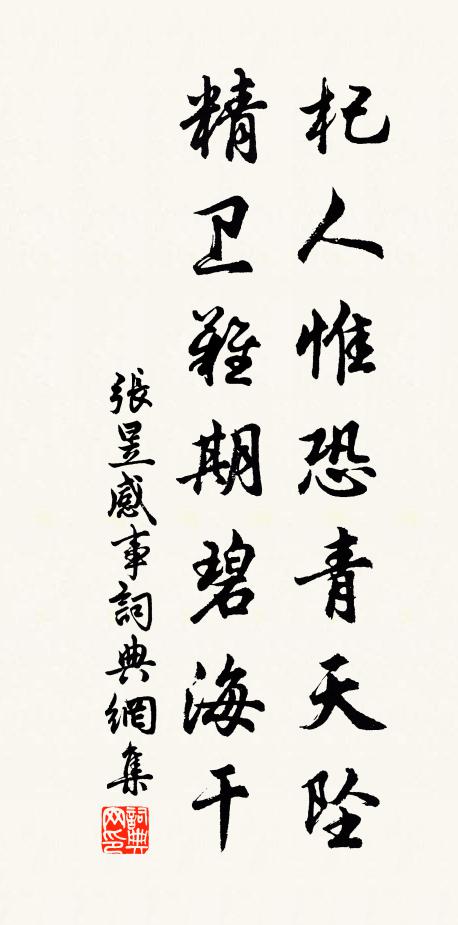 杞人惟恐青天坠
精卫难期碧海干
張昱感事詞典網集
詞典网印